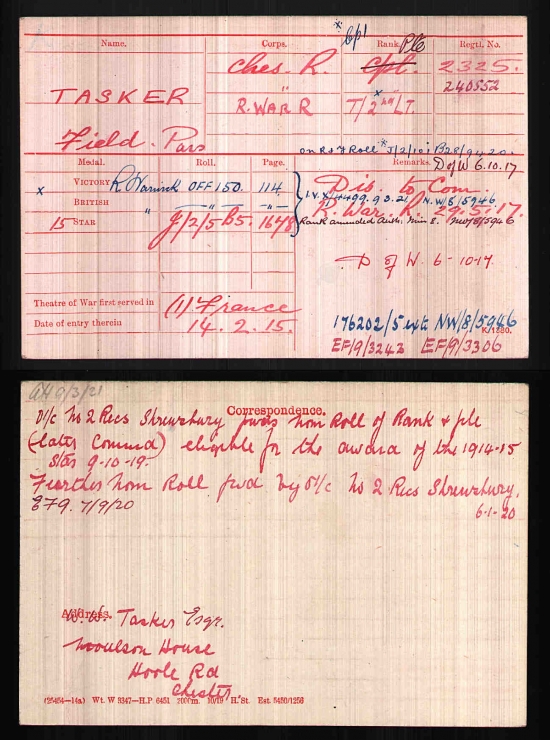 * Cpl
Name. Corps. Rank. Pte Regtl. No.
Ches. R. Cpl. 2325.
240552
TASKER
" R. WAR R T/2nd LT.
Field. Pars
on R & F Roll * J/2/10
D of W 6.10.17
Medal. Roll. Page. Remarks.
x VICTORY R. Warwick OFF 150. 114 Dis. to Com.
BRITISH " -"- -"- I.V.X/4499. 9.3.21 N.W/8/5946
15 STAR J/2/5 B5. 1678 R. War. R. 29.5.17.
Rank amended Auth. Min 8. NW/8/5946
D of W. 6-10-17.
Theatre of War first served in (1) France
Date of entry therein 14.2.15.
176202/5 ext NW/8/5946
K/1380.
EF/9/3242 EF/9/3306
AH 9/3/21
Correspondence.
O/c No 2 Recs Shrewsbury fwds Nom Roll of Rank & file
(later Commd) eligible for the award of the 1914-15
Star 9-10-19.
Further Nom Roll fwd by O/c No 2 Recs Shrewsbury.
6-1-20
E79. 7/9/20
Address.
W. W. Tasker Esqr.
Moulson House
Hoole Rd
Chester
(25454—14a) Wt. W 3347—H.P 6451 2000m. 10/19 H. St. Est 5450/1250